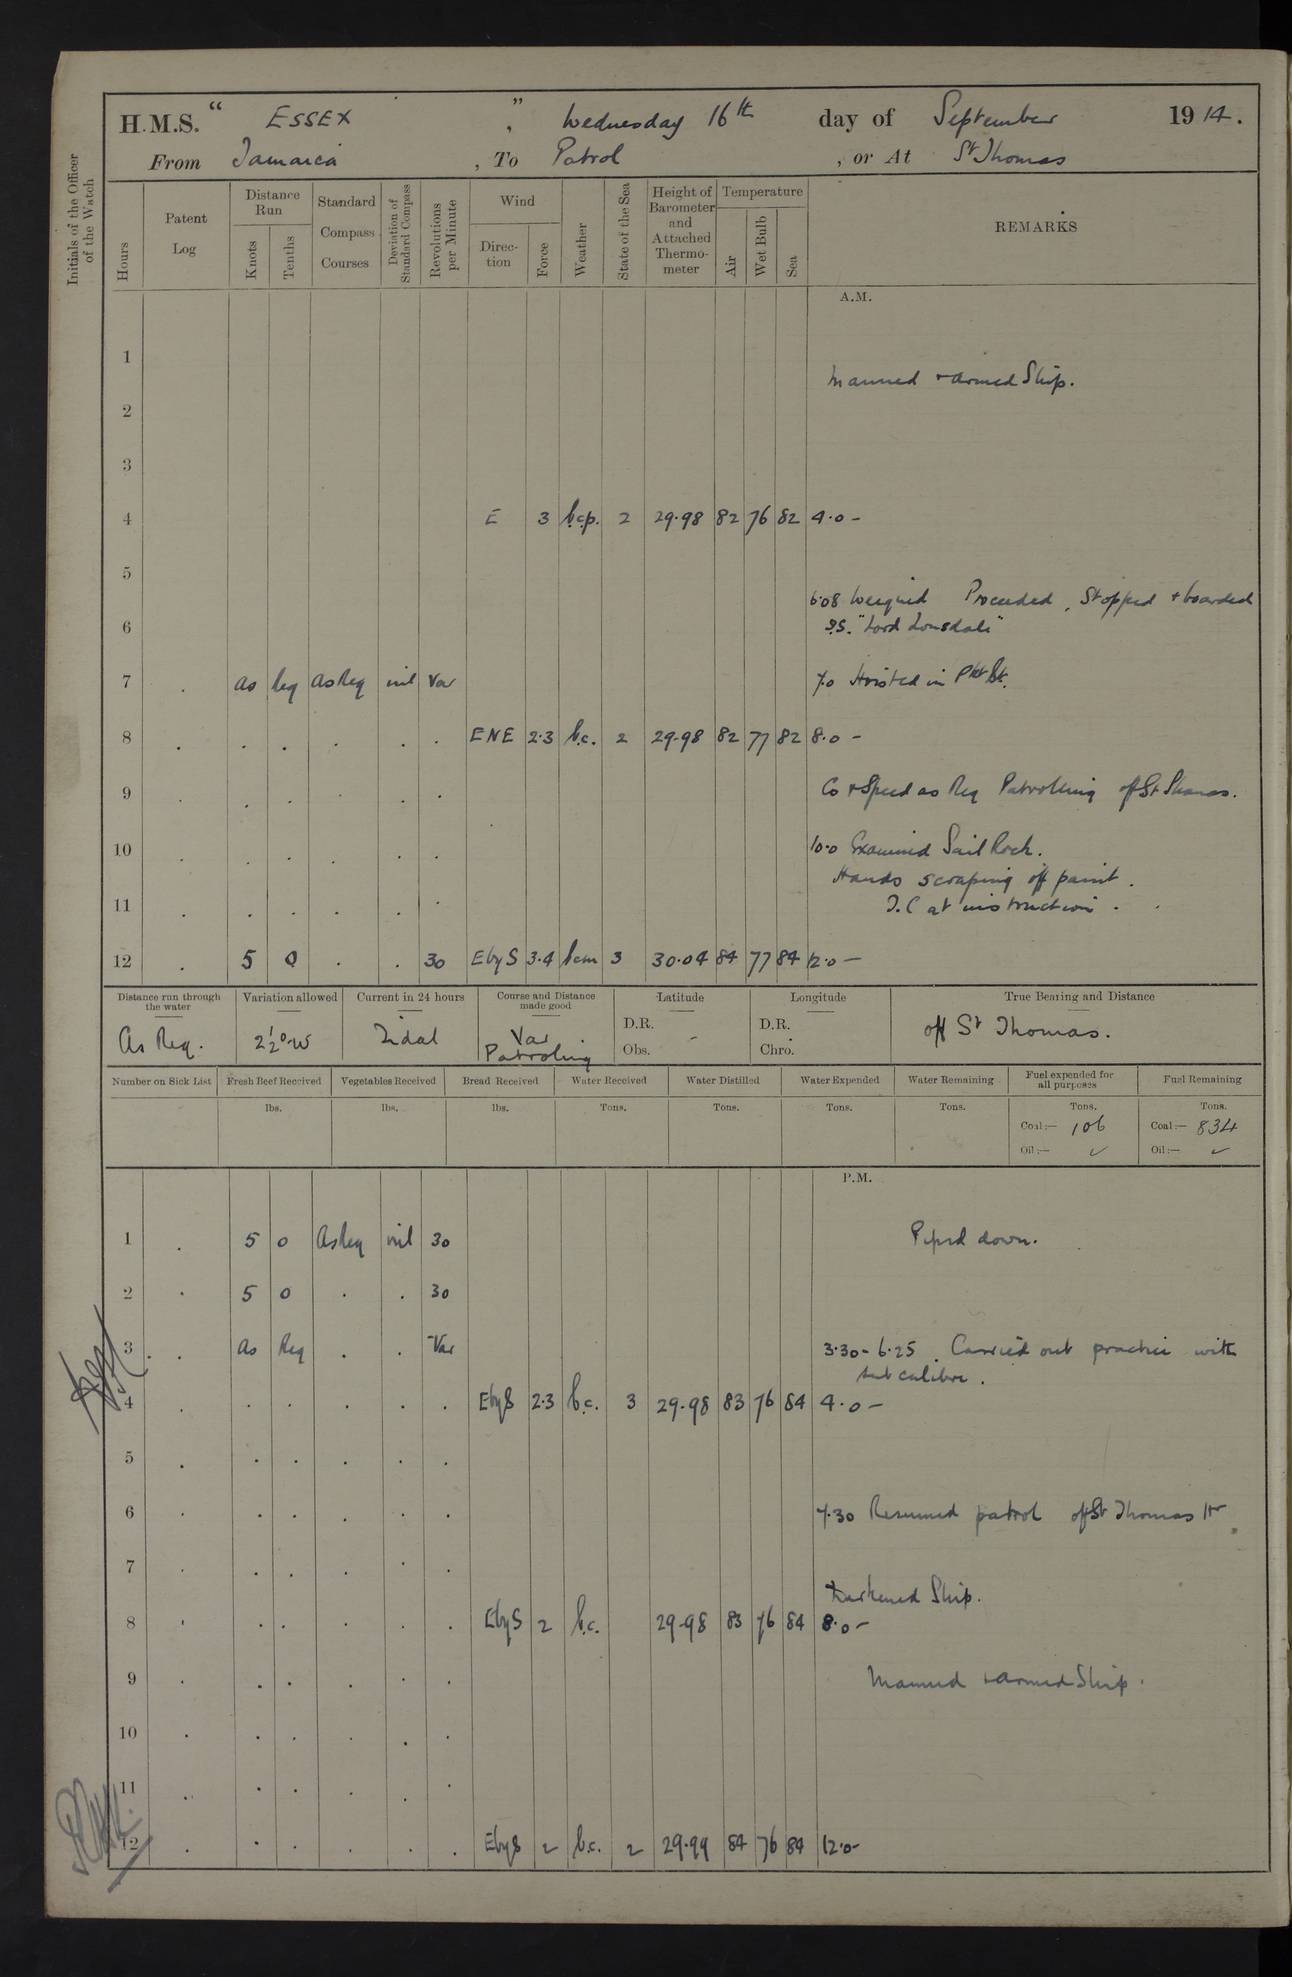 H.M.S. “ ESSEX ” , Wednesday 16th day of September 1914.
From Jamaica , To Patrol , or At St Thomas
Initials of the Officer of the Watch
Hours
Patent Log
Distance Run
Knots
Tenths
Standard Compass Courses
Deviation of Standard Compass
Revolutions per Minute
Wind
Direction
Force
Weather
State of the Sea
Height of Barometer and Attached Thermometer
Temperature
Air
Wet Bulb
Sea
REMARKS
A.M.
1
Manned + armed Ship.
2
3
4 E 3 b.c.p. 2 29.98 82 76 82 4.0 -
5
6.08 Weighed Proceeded, Stopped + boarded
6 S.S. "Lord Lonsdale"
7 . as Req as Req nil Var 7.0 Hoisted in
8 . . . . . . ENE 2.3 b.c. 2 29.98 82 77 82 8.0 -
9 . . . . . . Co + Speed as Req Patrolling off St Thomas.
10 . . . . . . 10.0 Examined Sail Rock.
Hands scraping off paint.
11 . . . . . . at instruction.
12 . 5 0 . . 30 E by S 3.4 bcm 3 30.04 84 77 84 12.0 -
Distance run through the water
Variation allowed
Current in 24 hours
Course and Distance made good
Latitude
Longitude
True Bearing and Distance
As Req. 2½° W Tidal Var Patroling D.R. - Obs. D.R. Chro. off St Thomas.
Number on Sick List
Fresh Beef Received
Vegetables Received
Bread Received
Water Received
Water Distilled
Water Expended
Water Remaining
Fuel expended for all purposes
Fuel Remaining
lbs. lbs. lbs. Tons. Tons. Tons. Tons. Tons. Tons.
Coal:— 106 Coal:— 834
Oil:— ✓ Oil:— ✓
P.M.
1 . 5 0 As Req nil 30 Piped down.
2 . 5 0 . . 30
3 . as Req . . Var 3.30 - 6.25. Carried out practice with
sub calibre.
4 . . . . . . E by S 2.3 b.c. 3 29.98 83 76 84 4.0 -
5 . . . . . .
6 . . . . . . 7.30 Resumed patrol off St Thomas Hr
7 . . . . . .
Darkened Ship.
8 . . . . . . E by S 2 b.c. 29.98 83 76 84 8.0 -
9 . . . . . . Manned + armed Ship.
10 . . . . . .
11 . . . . . .
12 . . . . . . E by S 2 b.c. 2 29.99 84 76 84 12.0 -